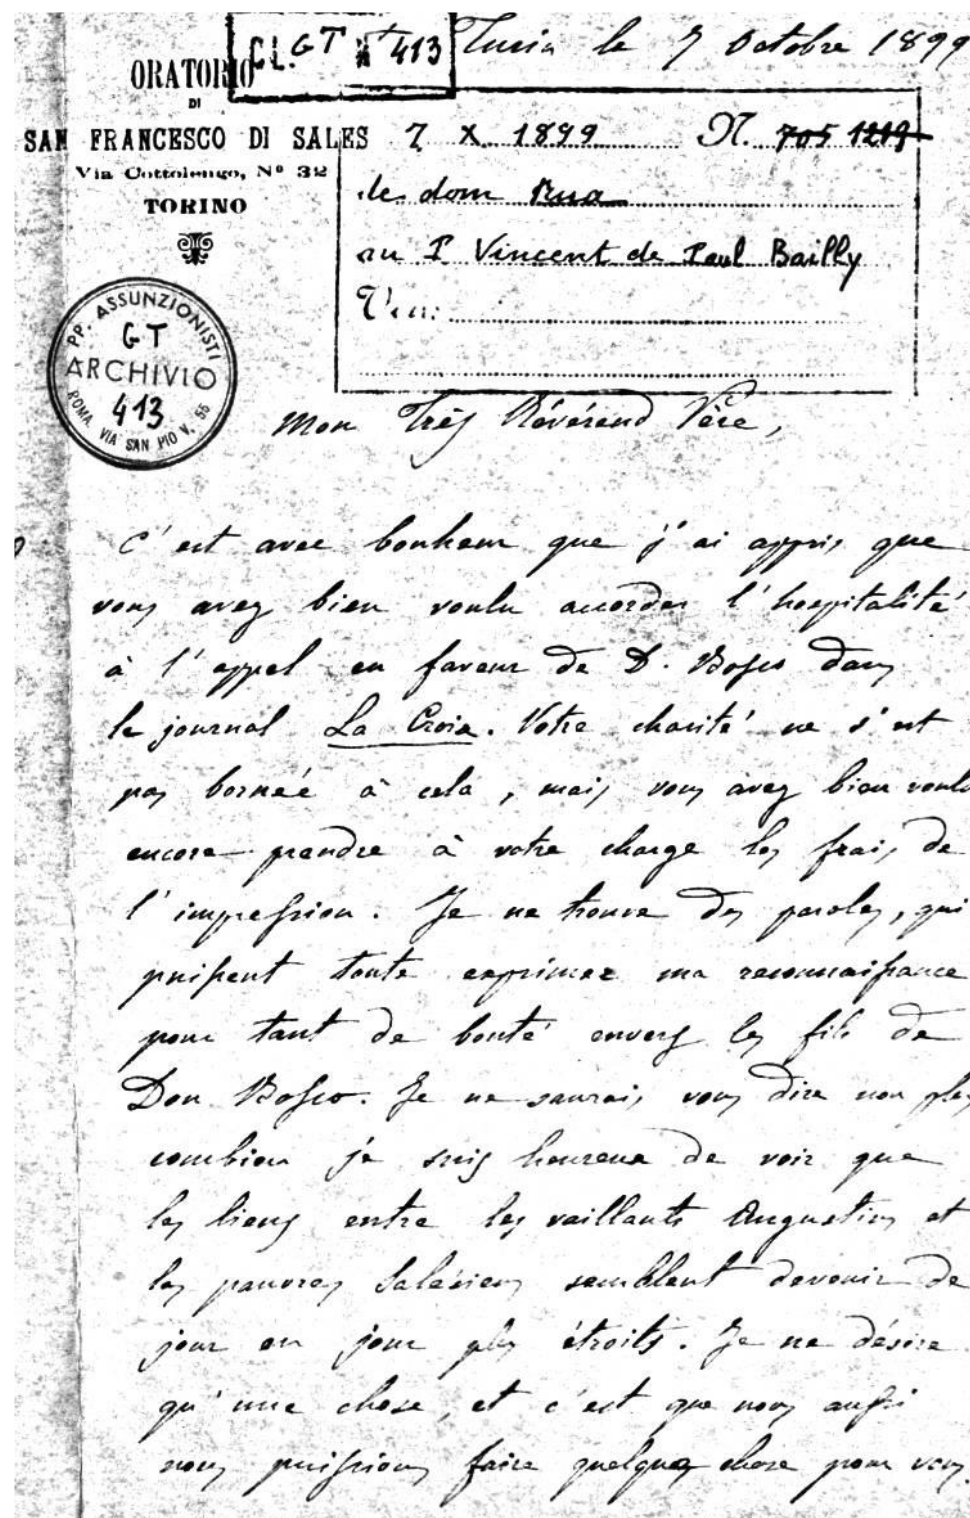 CL. GT N° 413
Turin le 7 Octobre 1899
ORATORIO
DI
SAN FRANCESCO DI SALES
Via Cottolengo, N° 32
TORINO
7 X 1899 N. 705 1219
de dom Rua
au P Vincent de Paul Bailly
PP. ASSUNZIONISTI
GT
ARCHIVIO
413
ROMA VIA SAN PIO V. 55
Mon Très Révérend Père,
C'est avec bonheur que j'ai appris que
vous avez bien voulu accorder l'hospitalité
à l'appel en faveur de D. Bosco dans
le journal La Croix. Votre charité ne s'est
pas bornée à cela, mais vous avez bien voulu
encore prendre à votre charge les frais de
l'impression. Je ne trouve des paroles, qui
puissent toute exprimer ma reconnaissance
pour tant de bonté envers les fils de
Don Bosco. Je ne saurais vous dire non plus
combien je suis heureux de voir que
les liens entre les vaillants Augustins et
les pauvres Salésiens semblent devenir de
jour en jour plus étroits. Je ne désire
qu'une chose, et c'est que nous aussi
nous puissions faire quelque chose pour vous.